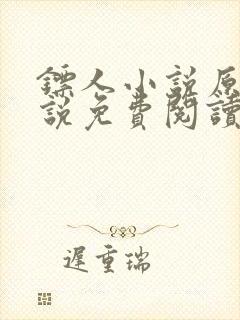 鏢人小說原
說免費閱讀
遲重瑞